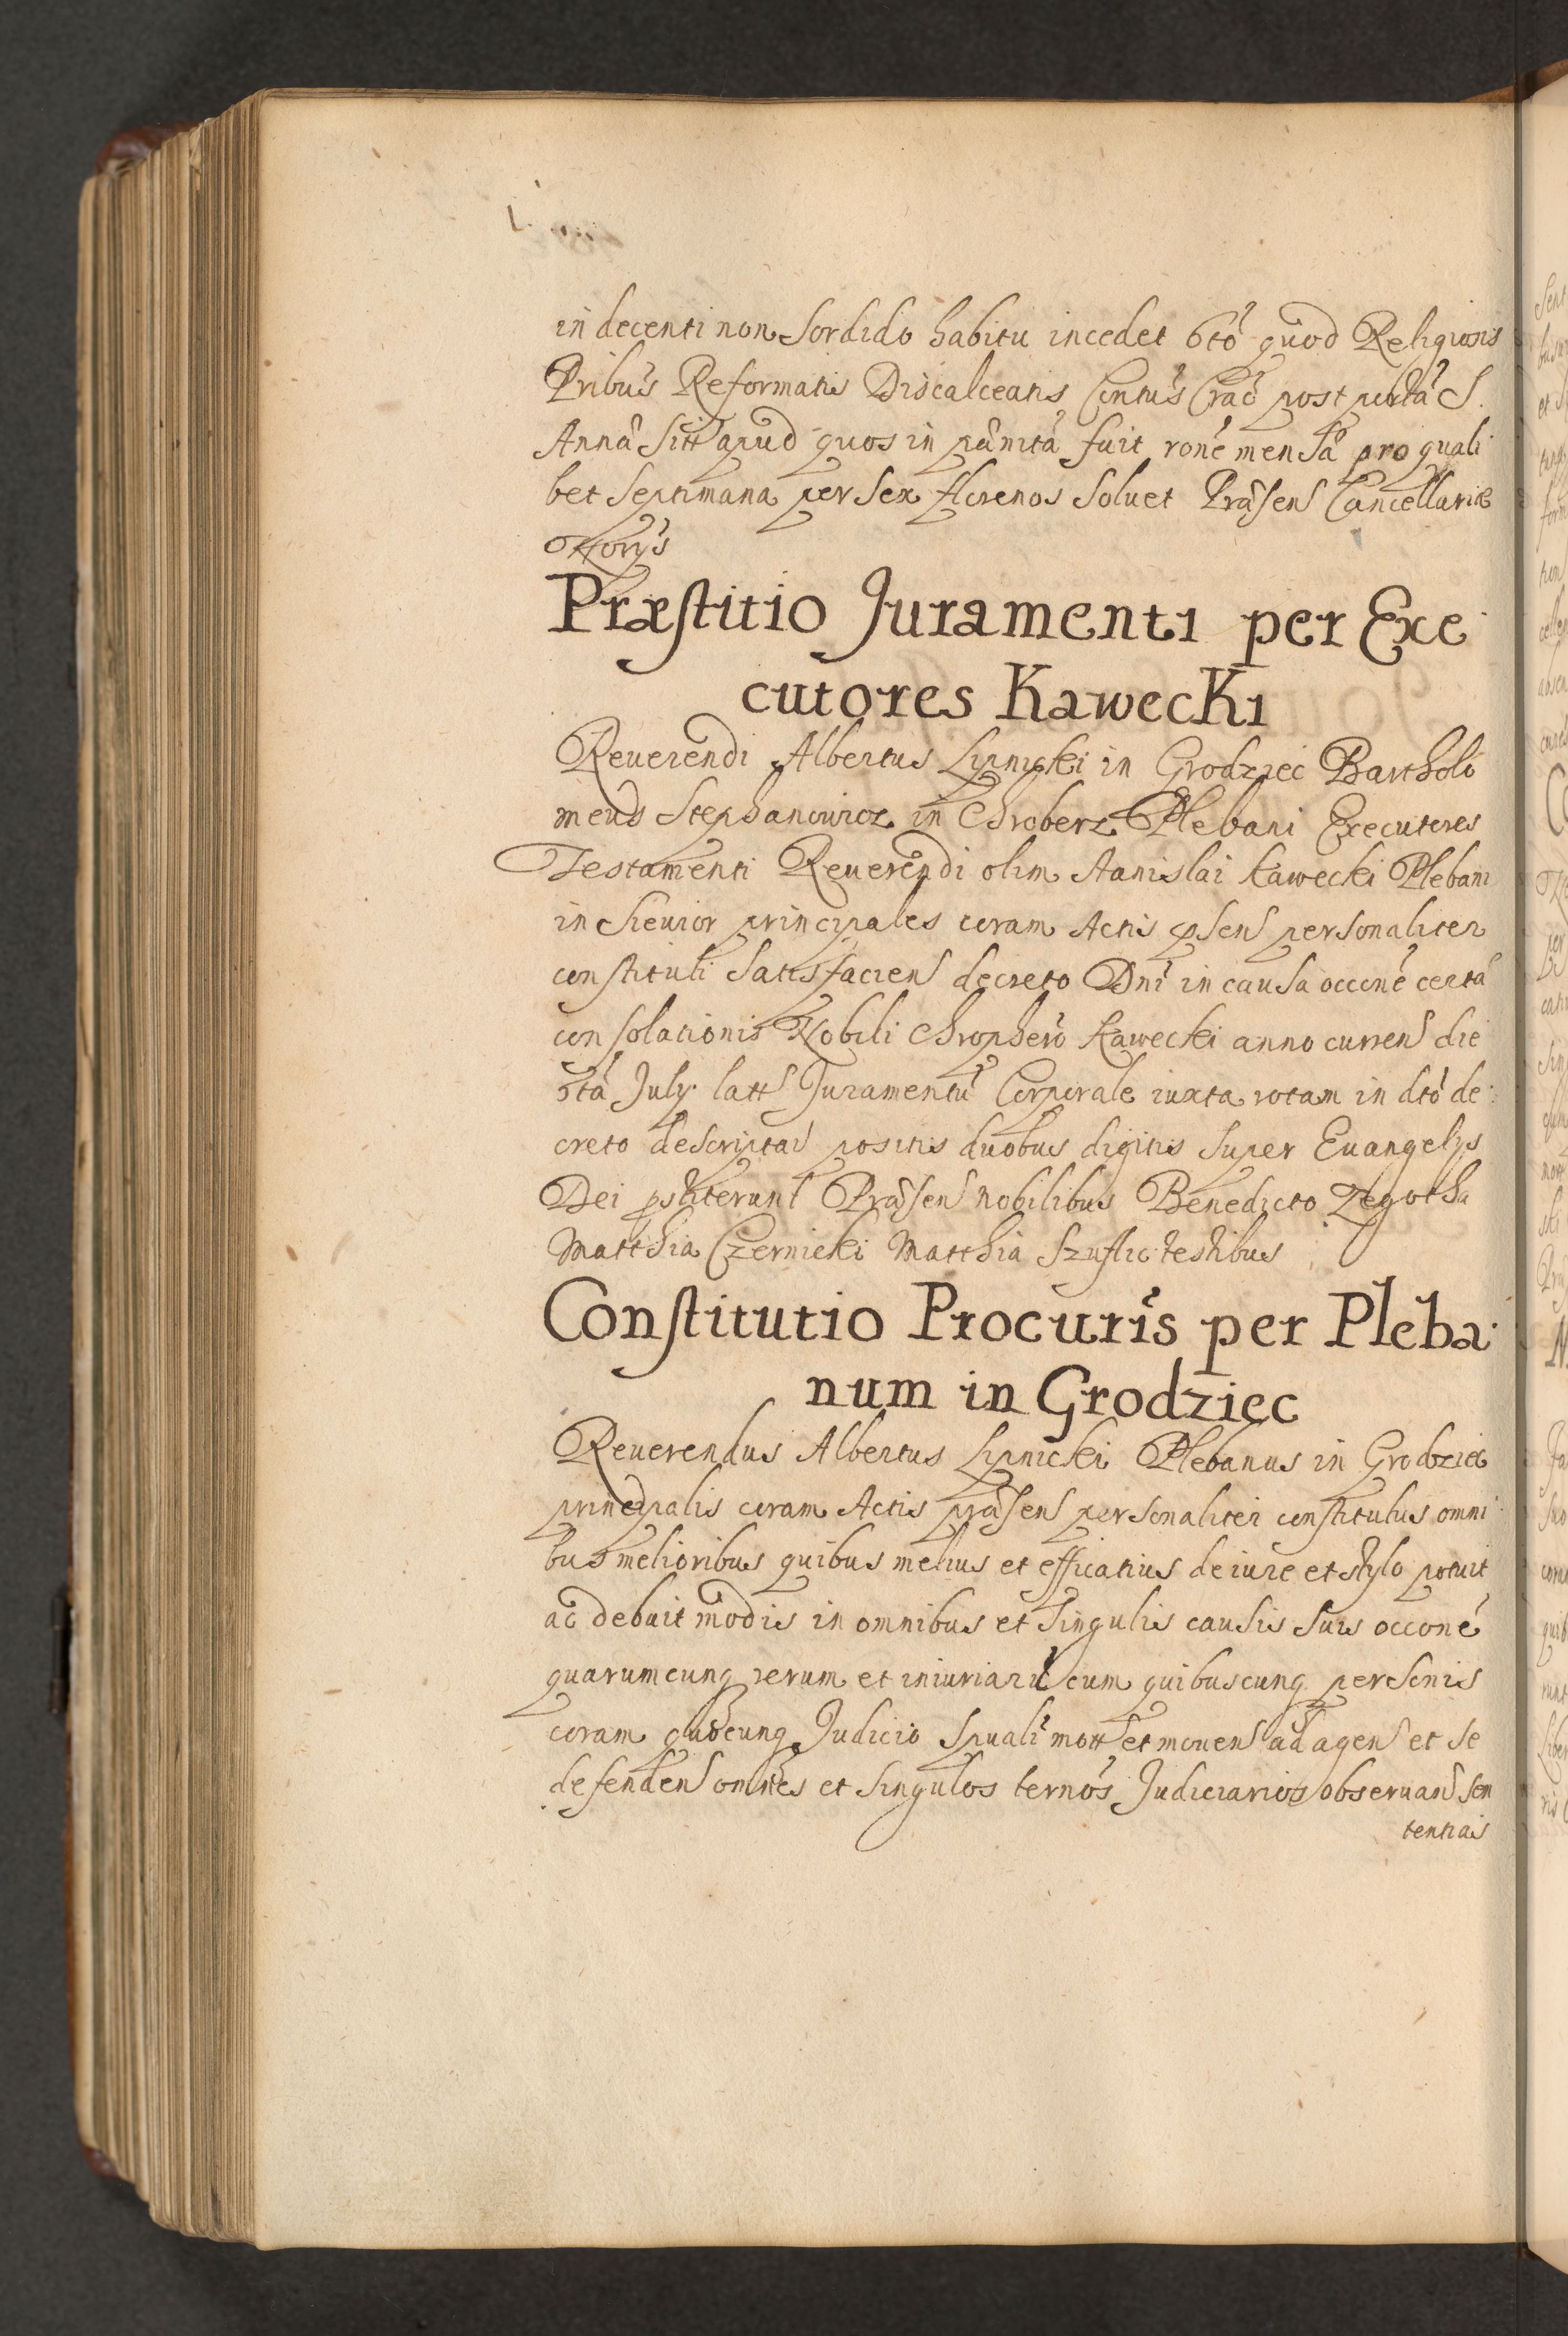 in decenti non sordido habitu incedet 6tó quod Religiosis
Pribus Reformatis Discalceatis Contus Crac post portã S.
Annã sitt apud quos in pãnitã fuit roné mensã pro quali
bet septimana per sex florenos soluet Prãsen Cancellariæ
Norys
Præstitio Juramenti per Exe
cutores Kawecki
Reuerendi Albertus Lipnicki in Grodziec Bartholo
meus Stephanowicz in Chroberz Plebani Executores
Testamenti Reuerendi olim Stanislai Kawecki Plebani
in Siewior principales coram Actis psen personaliter
constituti satisfacien decreto Dni in causa occoné certã
consolationis Nobili Chrophero Kawecki anno curren die
6tã July latt Juramentũ Corporale iuxta rotam in dtó de
creto descriptas positis duobus digitis super Euangelys
Dei pstiterunt Prãsen nobilibus Benedicto Zegotha
Matthia Czernicki Matthia Szuflic testibus
Constitutio Procuris per Pleba
num in Grodziec
Reuerendus Albertus Lipnicki Plebanus in Grodziec
principalis coram Actis prãsen personaliter constitutus omni
bus melioribus quibus melius et efficatius de iure et stylo potuit
ac debuit modis in omnibus et singulis causis suis occoné
quarumcunq rerum et iniuriarũ cum quibuscunq personis
coram quocunq Judicio spuali mott et mouen ad agen et se
defenden omnes et singulos ternos Judiciarios obseruan sen
tentias